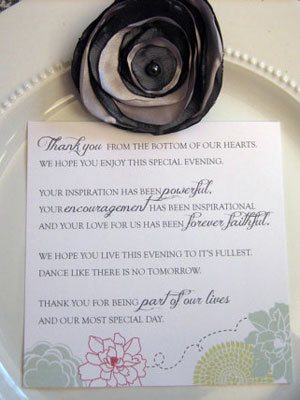 Thank you FROM THE BOTTOM OF OUR HEARTS.
WE HOPE YOU ENJOY THIS SPECIAL EVENING.
YOUR INSPIRATION HAS BEEN powerful,
YOUR encouragement HAS BEEN INSPIRATIONAL
AND YOUR LOVE FOR US HAS BEEN forever faithful.
WE HOPE YOU LIVE THIS EVENING TO IT'S FULLEST.
DANCE LIKE THERE IS NO TOMORROW.
THANK YOU FOR BEING part of our lives
AND OUR MOST SPECIAL DAY.